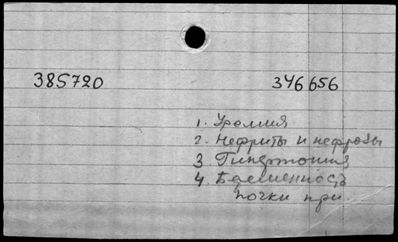 385720 346656
1. Уремия
2. Нефриты и нефрозы
3 Гипертония
4. Беременность
почки при